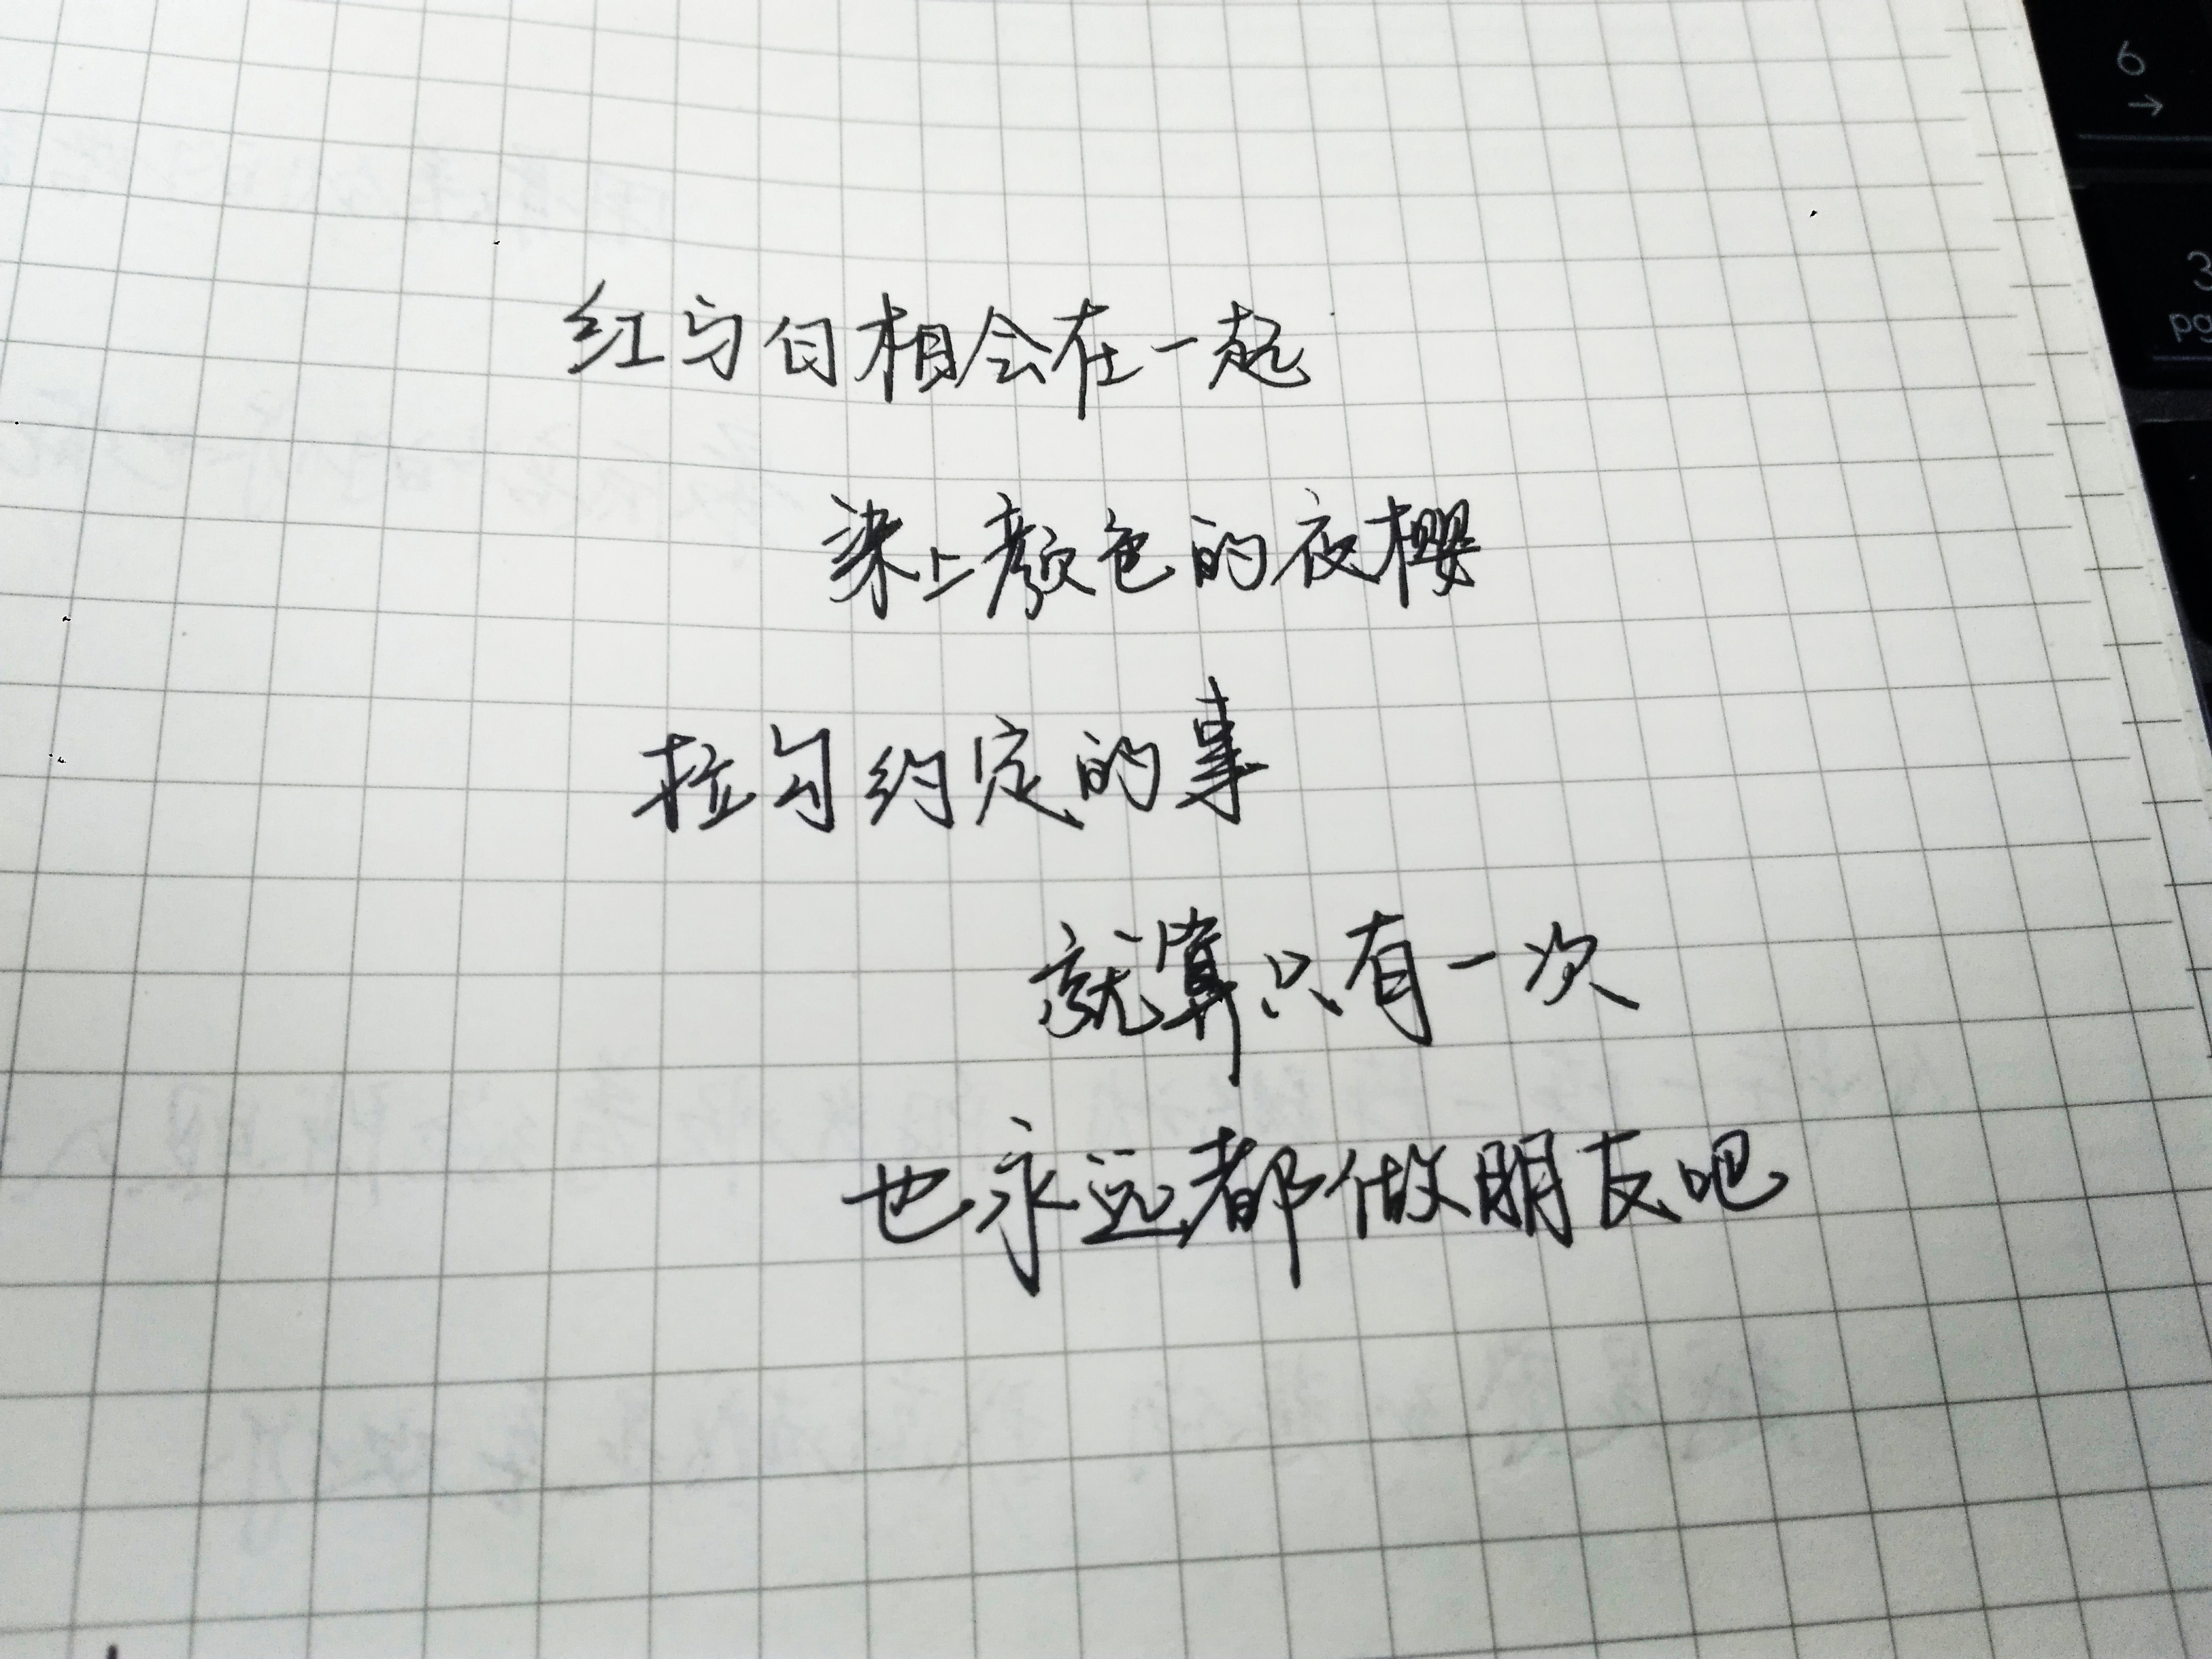 红与白相会在一起
染上颜色的夜樱
拉勾约定的事
就算只有一次
也永远都做朋友吧
6
→
3
pg